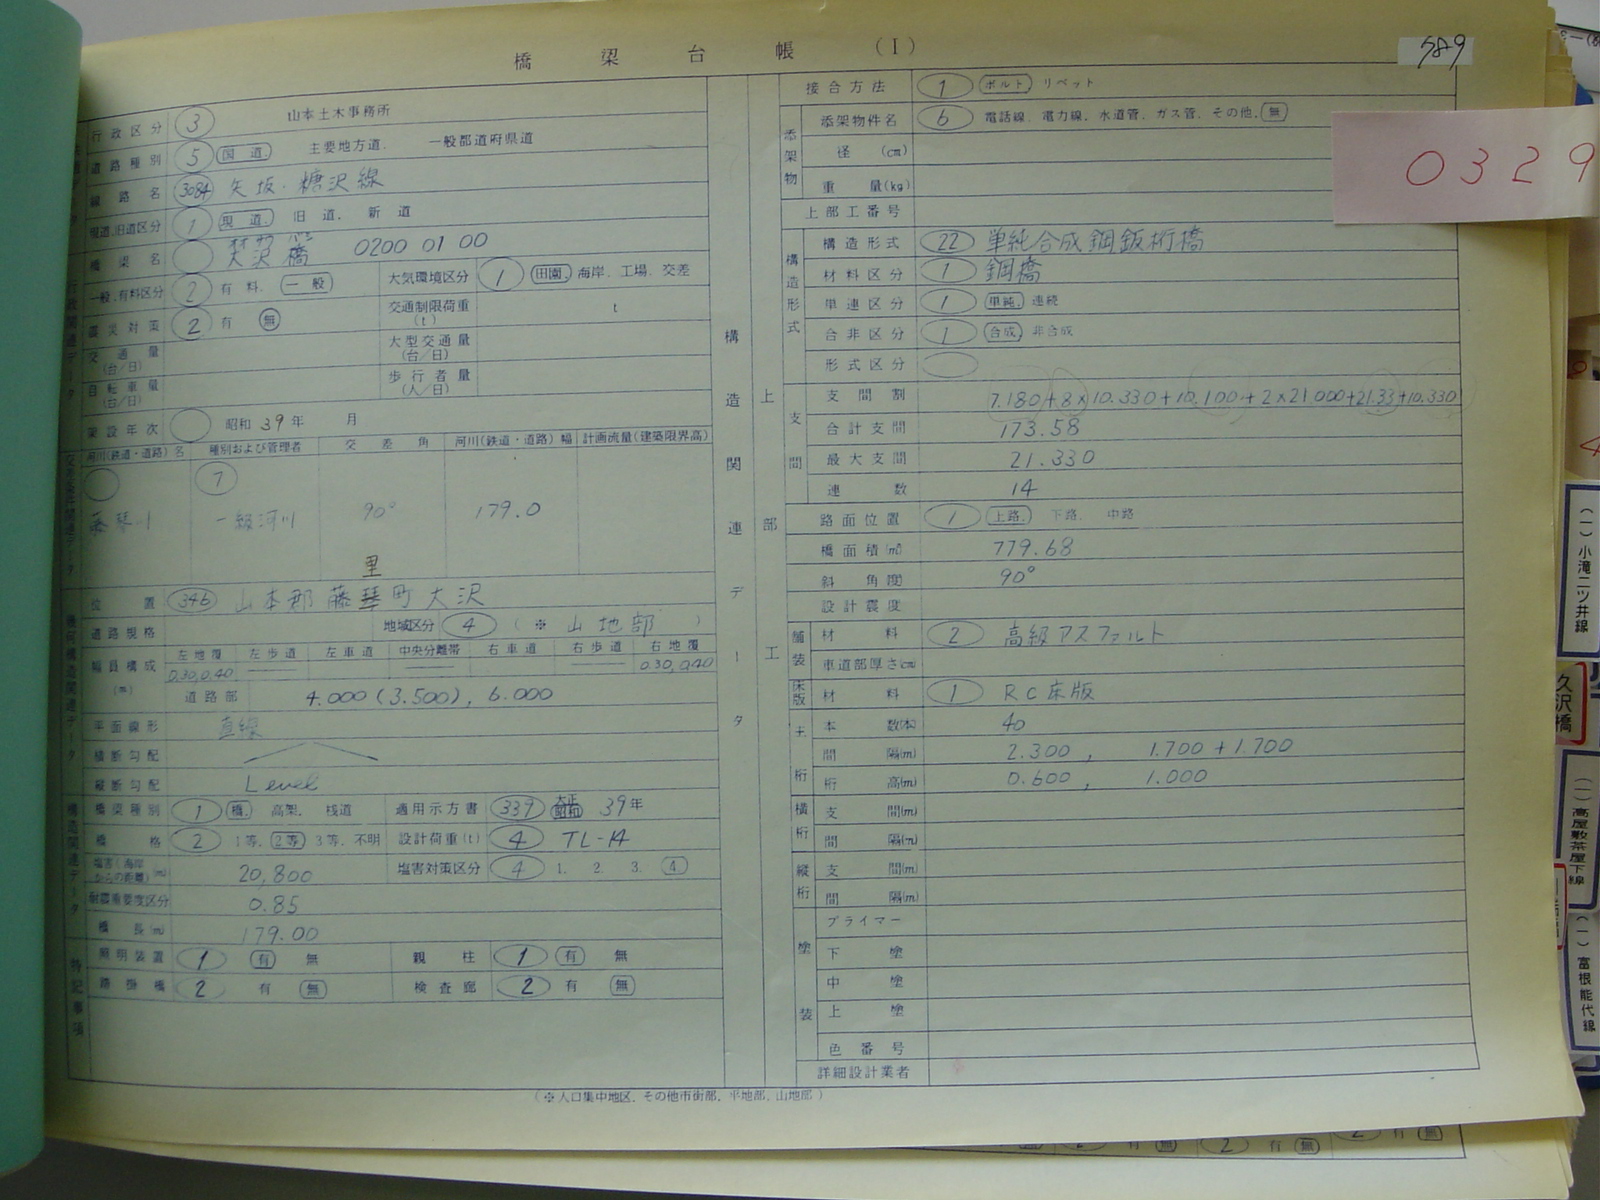 橋梁台帳 (I)
589
0329
行政区分 3 山本土木事務所
道路種別 5 国道. 主要地方道. 一般都道府県道
路線名 3084 矢坂・糖沢線
現道.旧道区分 1 現道. 旧道. 新道
橋梁名 大沢橋 0200 01 00
一般.有料区分 2 有料. 一般 大気環境区分 1 田園. 海岸. 工場. 交差
震災対策 2 有 無 交通制限荷重(t) t
交通量(台/日) 大型交通量(台/日)
自転車量(台/日) 歩行者量(人/日)
架設年次 昭和 39年 月
河川(鉄道・道路)名 種別および管理者 交差角 河川(鉄道・道路)幅 計画流量(建築限界高)
藤琴川 7 一級河川 90° 179.0
里
位置 346 山本郡藤琴町大沢
道路規格 地域区分 4 (※ 山地部 )
幅員構成(m) 左地覆 左歩道 左車道 中央分離帯 右車道 右歩道 右地覆
0.30,0.40 0.30,0.40
道路部 4.000 (3.500), 6.000
平面線形 直線
横断勾配
縦断勾配 Level
橋梁種別 1 橋. 高架. 桟道 適用示方書 339 大正 昭和 39年
橋格 2 1等. 2等 3等. 不明 設計荷重(t) 4 TL-14
塩害(海岸からの距離)(m) 20,800 塩害対策区分 4 1. 2. 3. 4
耐震重要度区分 0.85
橋長(m) 179.00
照明装置 1 有 無 親柱 1 有 無
路掛橋 2 有 無 検査廊 2 有 無
特記事項
構造関連データ
上部工
接合方法 1 ボルト リベット
添架物
添架物件名 6 電話線. 電力線. 水道管. ガス管. その他. 無
径 (cm)
重量(kg)
上部工番号
構造形式
構造形式 22 単純合成鋼鈑桁橋
材料区分 1 鋼橋
単連区分 1 単純. 連続
合非区分 1 合成 非合成
形式区分
支間
支間割 7.180+8×10.330+10.100+2×21000+21.33+10.330
合計支間 173.58
最大支間 21.330
連数 14
路面位置 1 上路. 下路. 中路
橋面積(㎡) 779.68
斜角度 90°
設計震度
舗装 材料 2 高級アスファルト
車道部厚さcm
床版 材料 1 RC床版
主桁 本数(本) 40
間隔(m) 2.300 , 1.700+1.700
桁高(m) 0.600 , 1.000
横桁 支間(m)
間隔(m)
縦桁 支間(m)
間隔(m)
塗装 プライマー
下塗
中塗
上塗
色番号
詳細設計業者
(※人口集中地区. その他市街部. 平地部. 山地部)
(一)小滝二ツ井線
久沢橋
(一)高屋敷茶屋下線
(一)富根能代線
2 有 無